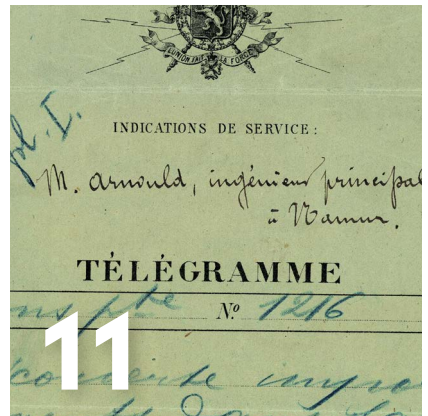 L'UNION FAIT LA FORCE
INDICATIONS DE SERVICE:
pl. I.
M. Arnould, ingénieur principal
à Namur.
TÉLÉGRAMME
Nº 1216
11